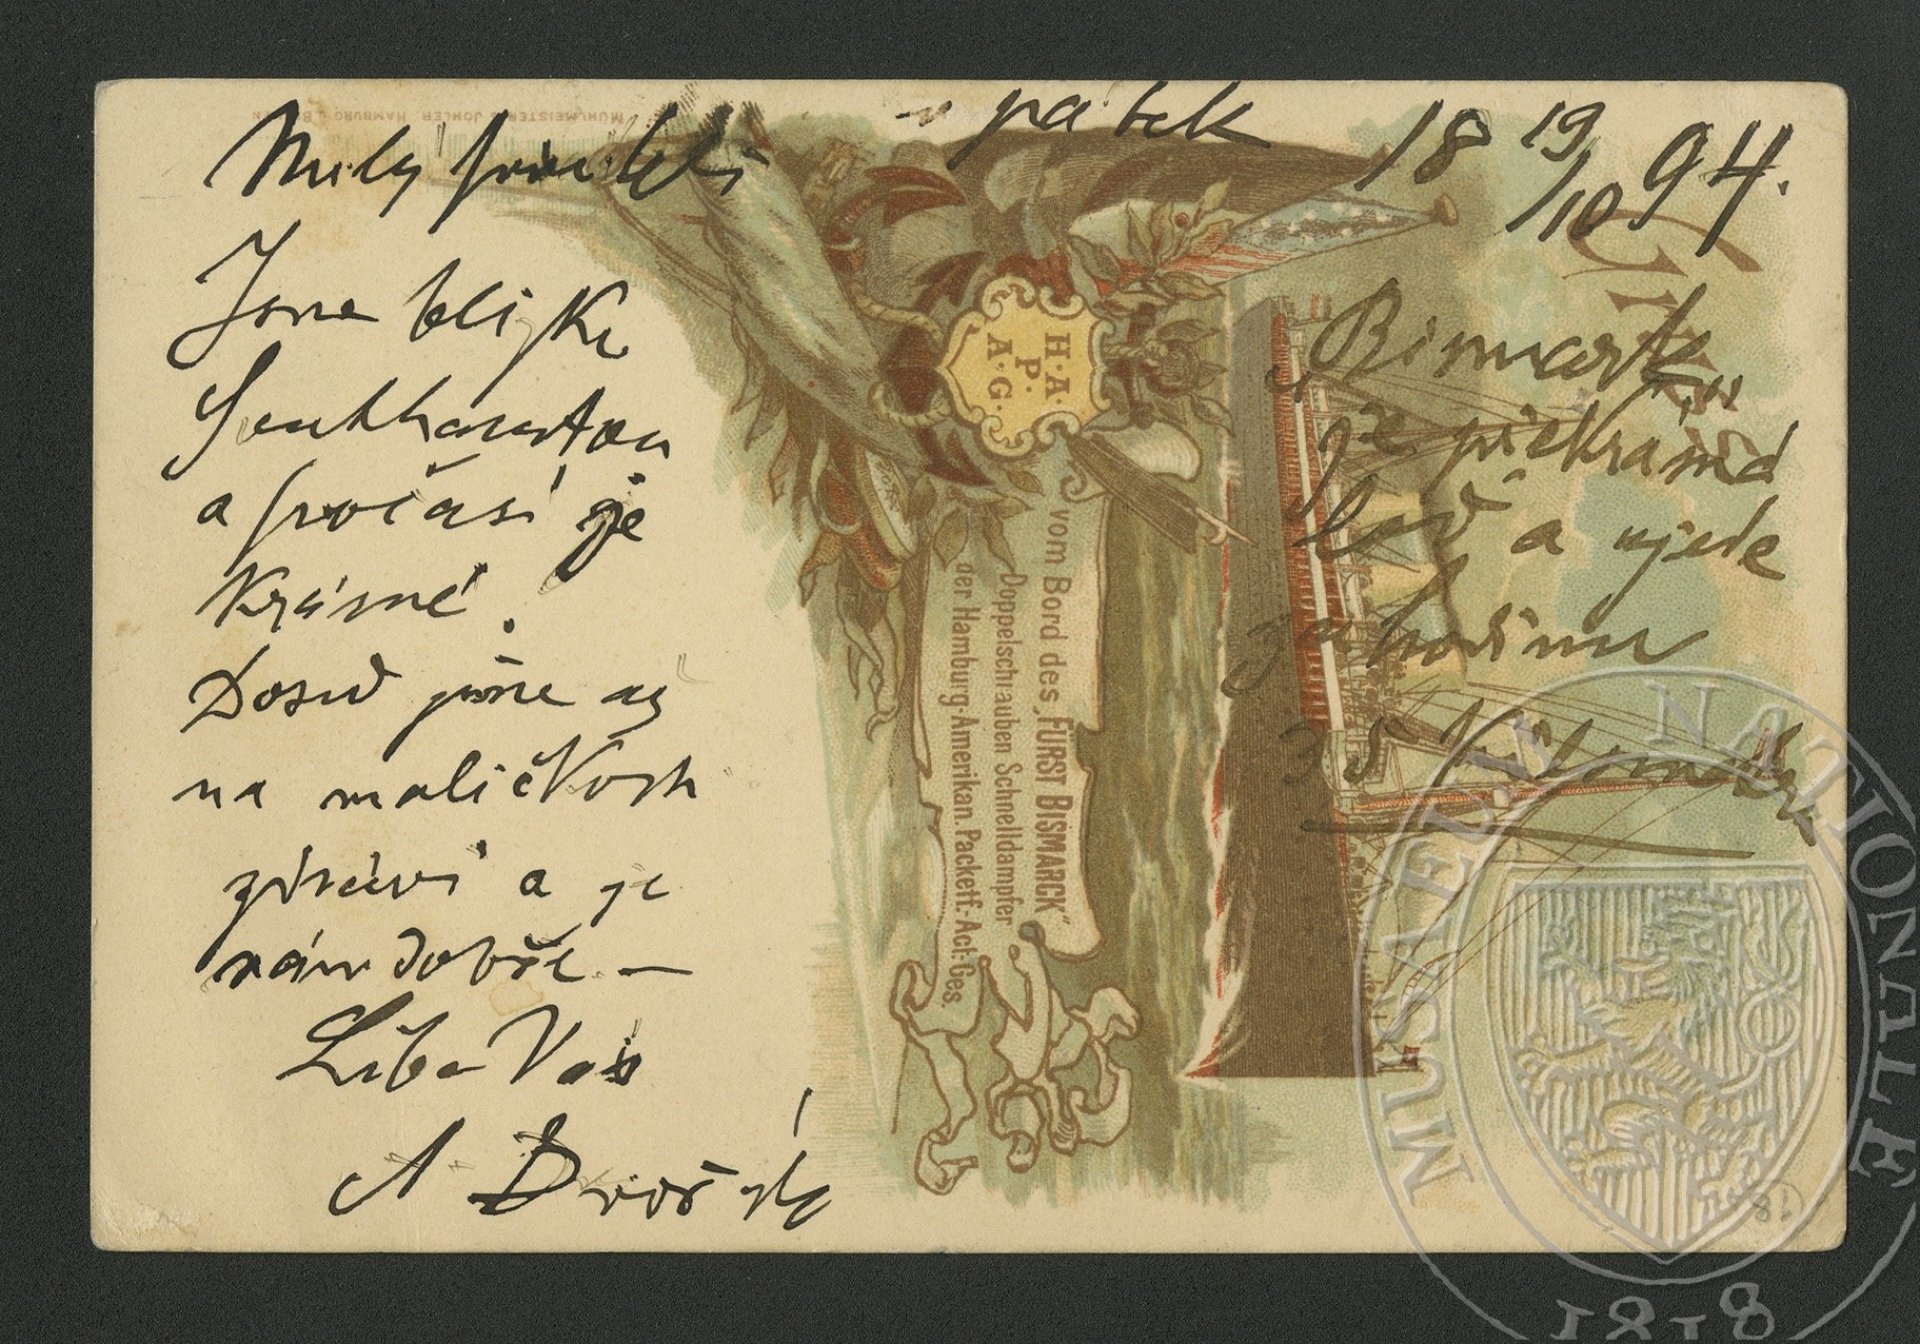 v pátek 18 19/10 94.
Milý příteli
Jsme blízko
Southampton
a počasí je
krásné.
Dosud jsme až
na maličkosti
zdrávi a je
nám dobře —
Líbá Vás
A Dvořák
"Bismark"
je překrásná
loď a ujede
za hodinu
35 kilometrů
H.A.
P.
A.G.
vom Bord des „FÜRST BISMARCK"
Doppelschrauben Schnelldampfer
der Hamburg-Amerikan. Packetf.-Act.-Ges.
MÜHLMEISTER JOHLER, HAMBURG
MUSAEUM NATIONALE
1818